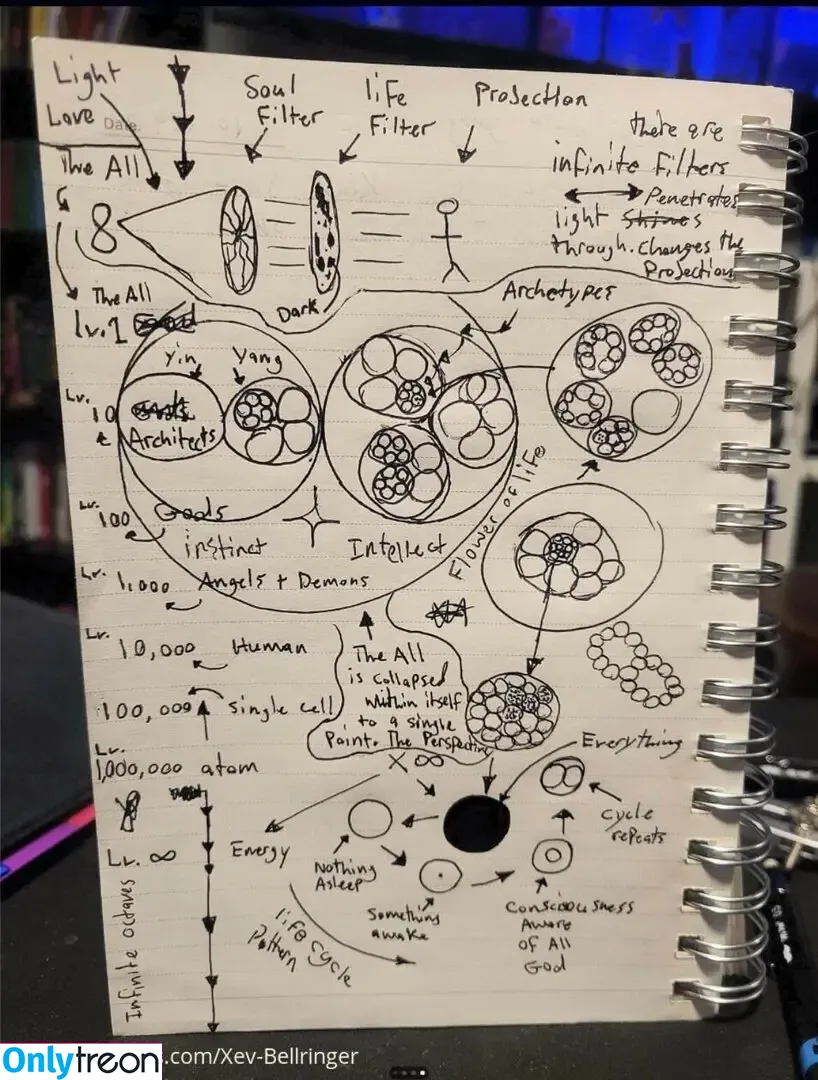 Light
Love
Date.
The All
Soul
Filter
life
Filter
Projection
there are
infinite filters
Penetrates
light Shines
through. Changes the
Projection
8
The All
Lv. 1
Dark
Archetypes
Yin
Yang
Lv.
10
Architects
Lv.
100
Gods
instinct
Intellect
Flower of life
Lv.
1,000 Angels + Demons
Lv.
10,000 Human
100,000 Single cell
Lv.
1,000,000 atom
Lv. ∞
Infinite octaves
The All
is collapsed
within itself
to a single
Point. The Perspective
X ∞
Everything
cycle
repeats
Energy
Nothing
Asleep
Something
awake
Consciousness
Aware
of All
God
life cycle
Pattern
Onlytreon
s.com/Xev-Bellringer